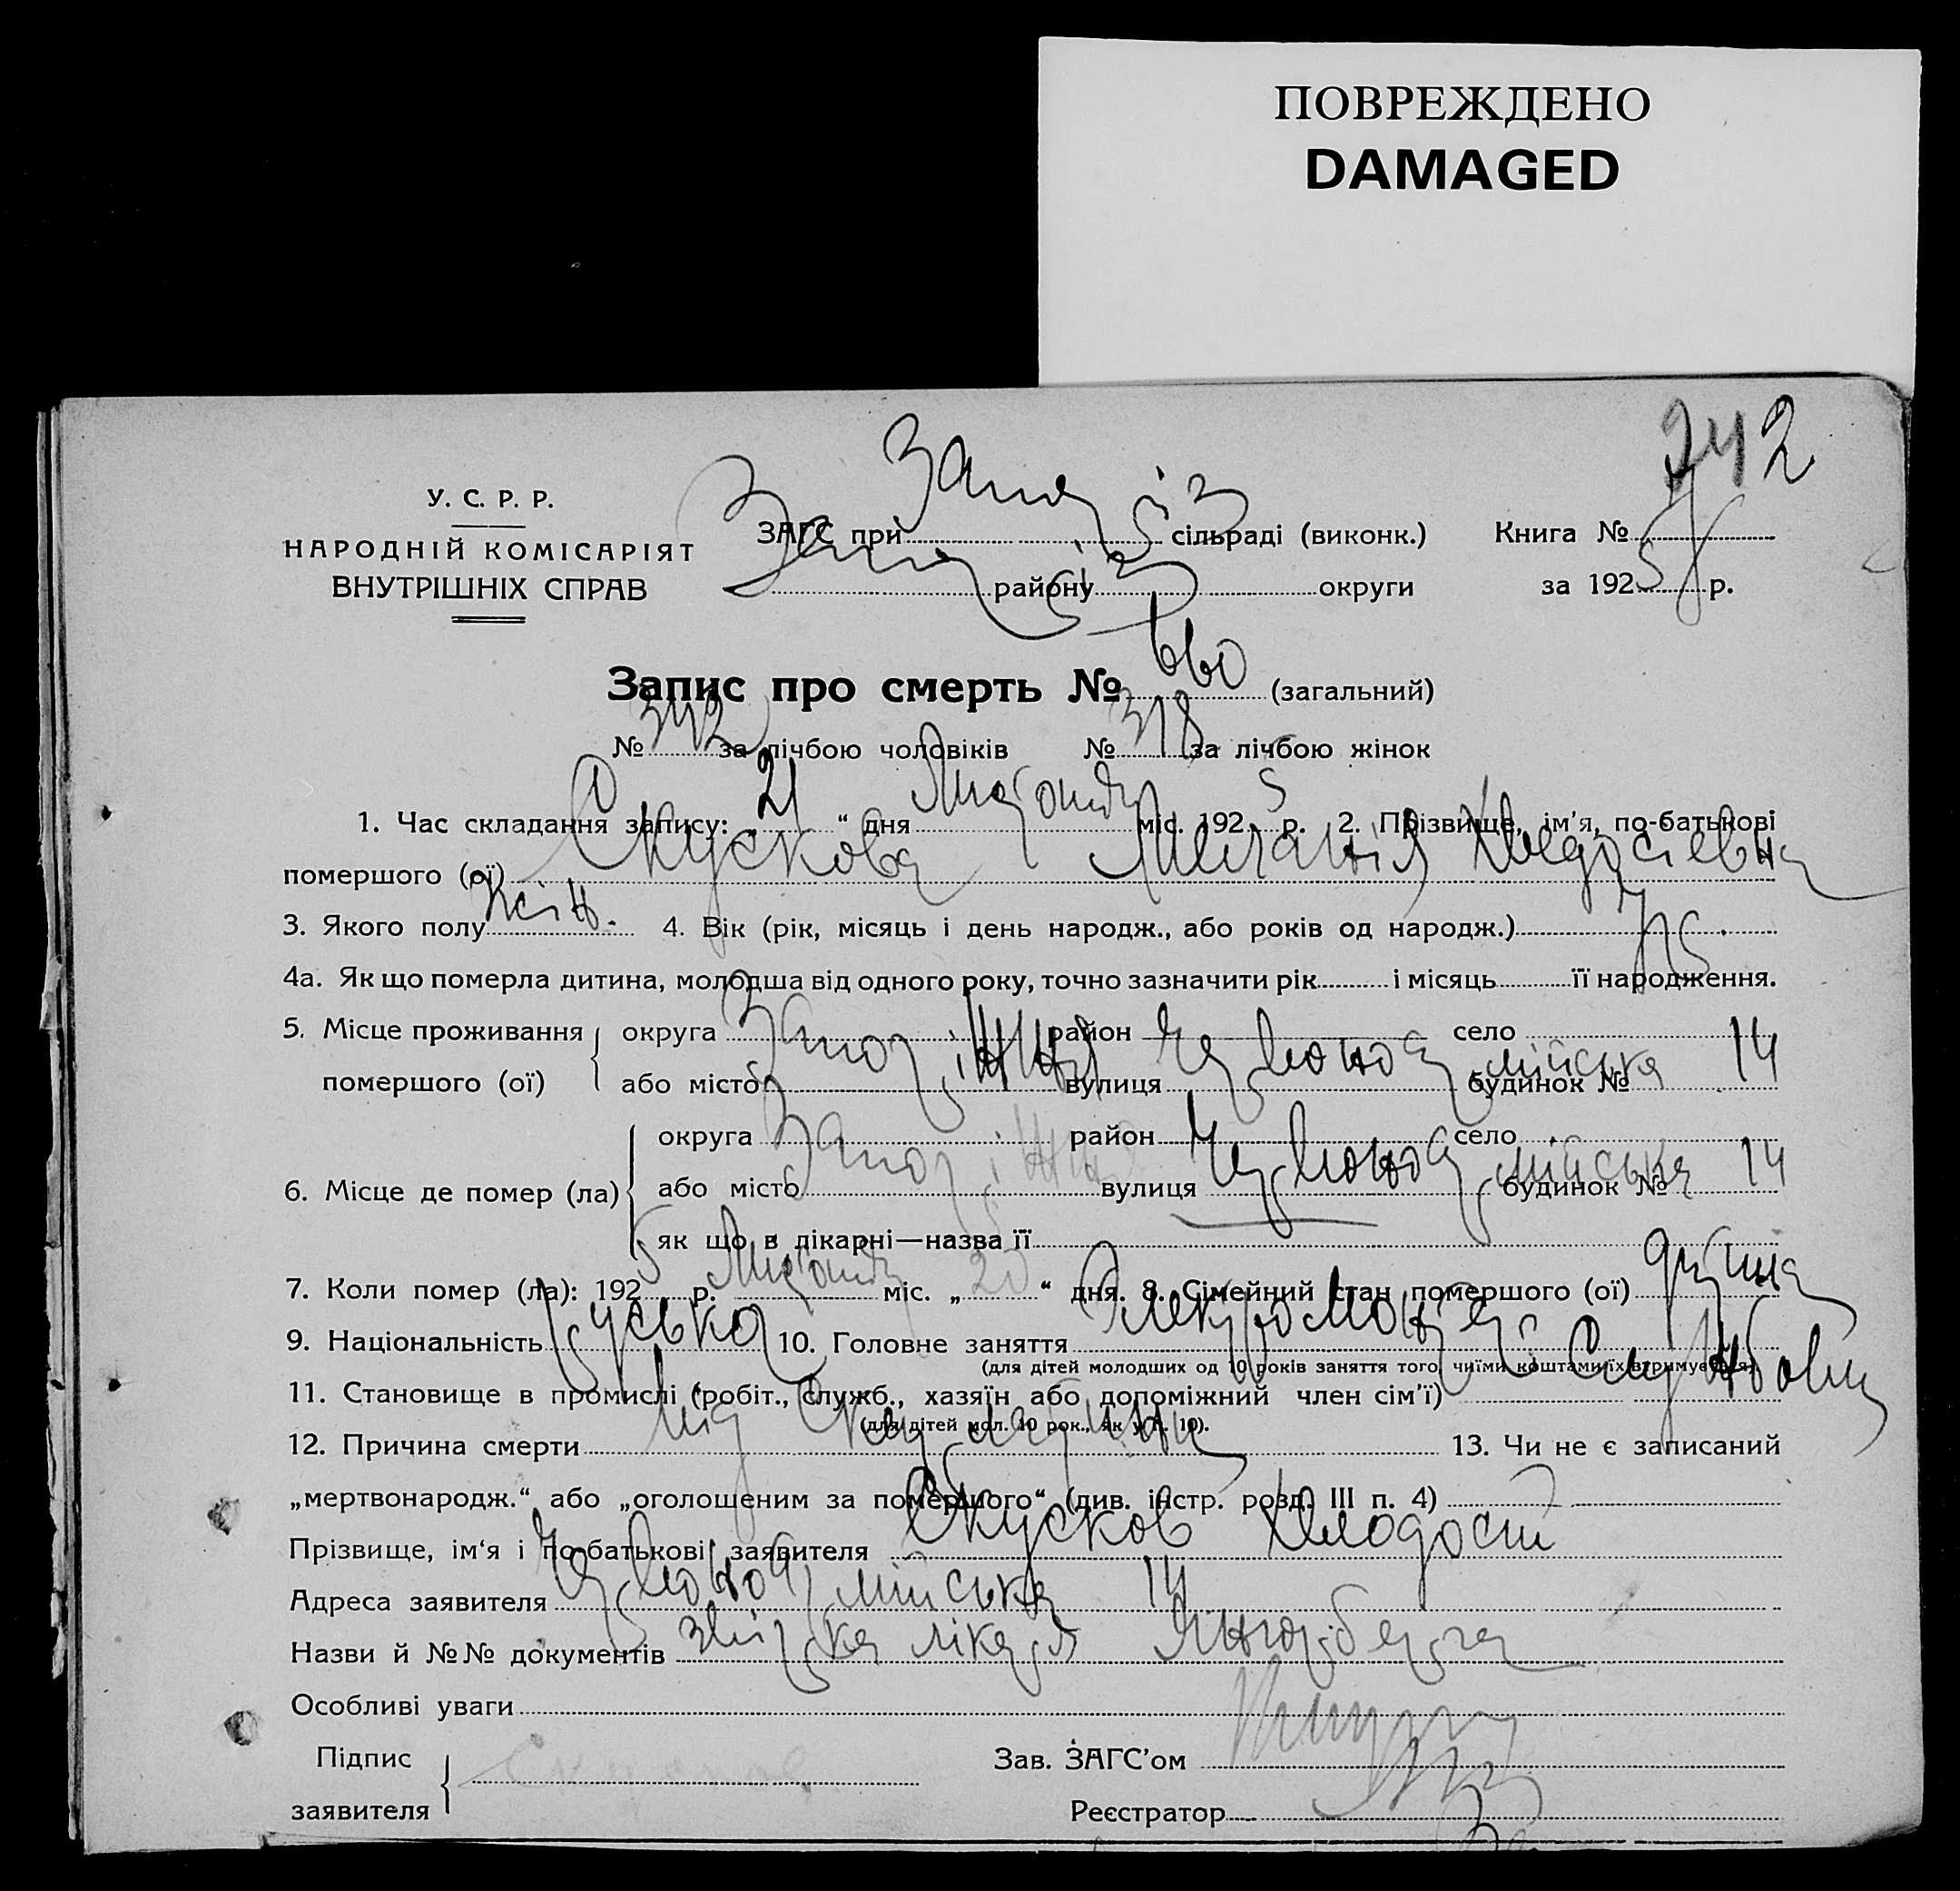 ПОВРЕЖДЕНО
DAMAGED
242
У. С. Р. Р.
НАРОДНІЙ КОМІСАРІЯТ
ВНУТРІШНІХ СПРАВ
ЗАГС при Запоріз сільраді (виконк.) Книга №
Запоріз району округи за 1925 р.
Запис про смерть № 660 (загальний)
№ 342 за лічбою чоловіків № 318 за лічбою жінок
1. Час складання запису: „21“ дня Листопада міс. 1925 р. 2. Прізвище, ім’я, по-батькові
помершого (ої) Скускова Меланія Хведосіевна
3. Якого полу жін. 4. Вік (рік, місяць і день народж., або років од народж.)
4а. Як що померла дитина, молодша від одного року, точно зазначити рік і місяць її народження.
5. Місце проживання округа район село
помершого (ої) або місто Запоріжжя вулиця Червоноармійська будинок № 14
округа район село
6. Місце де помер (ла) або місто Запоріжжя вулиця Червоноармійська будинок № 14
як що в лікарні—назва її
7. Коли помер (ла): 1925 р. Листопада міс. „20“ дня. 8. Сімейний стан помершого (ої)
9. Національність руська 10. Головне заняття Электромонтер
(для дітей молодших од 10 років заняття того, чиїми коштами їх втримується)
11. Становище в промислі (робіт., служб., хазяїн або допоміжний член сім’ї) Службовиц
(для дітей мол. 10 рок., як у п. 10).
12. Причина смерти від Скарлатини 13. Чи не є записаний
„мертвонародж.“ або „оголошеним за померлого“ (див. інстр. розд. III п. 4)
Прізвище, ім‘я і по-батькові заявителя Скусков
Адреса заявителя Червоноармійська 14
Назви й №№ документів лікаря
Особливі уваги
Підпис Зав. ЗАГС’ом
заявителя Скусков
Реєстратор